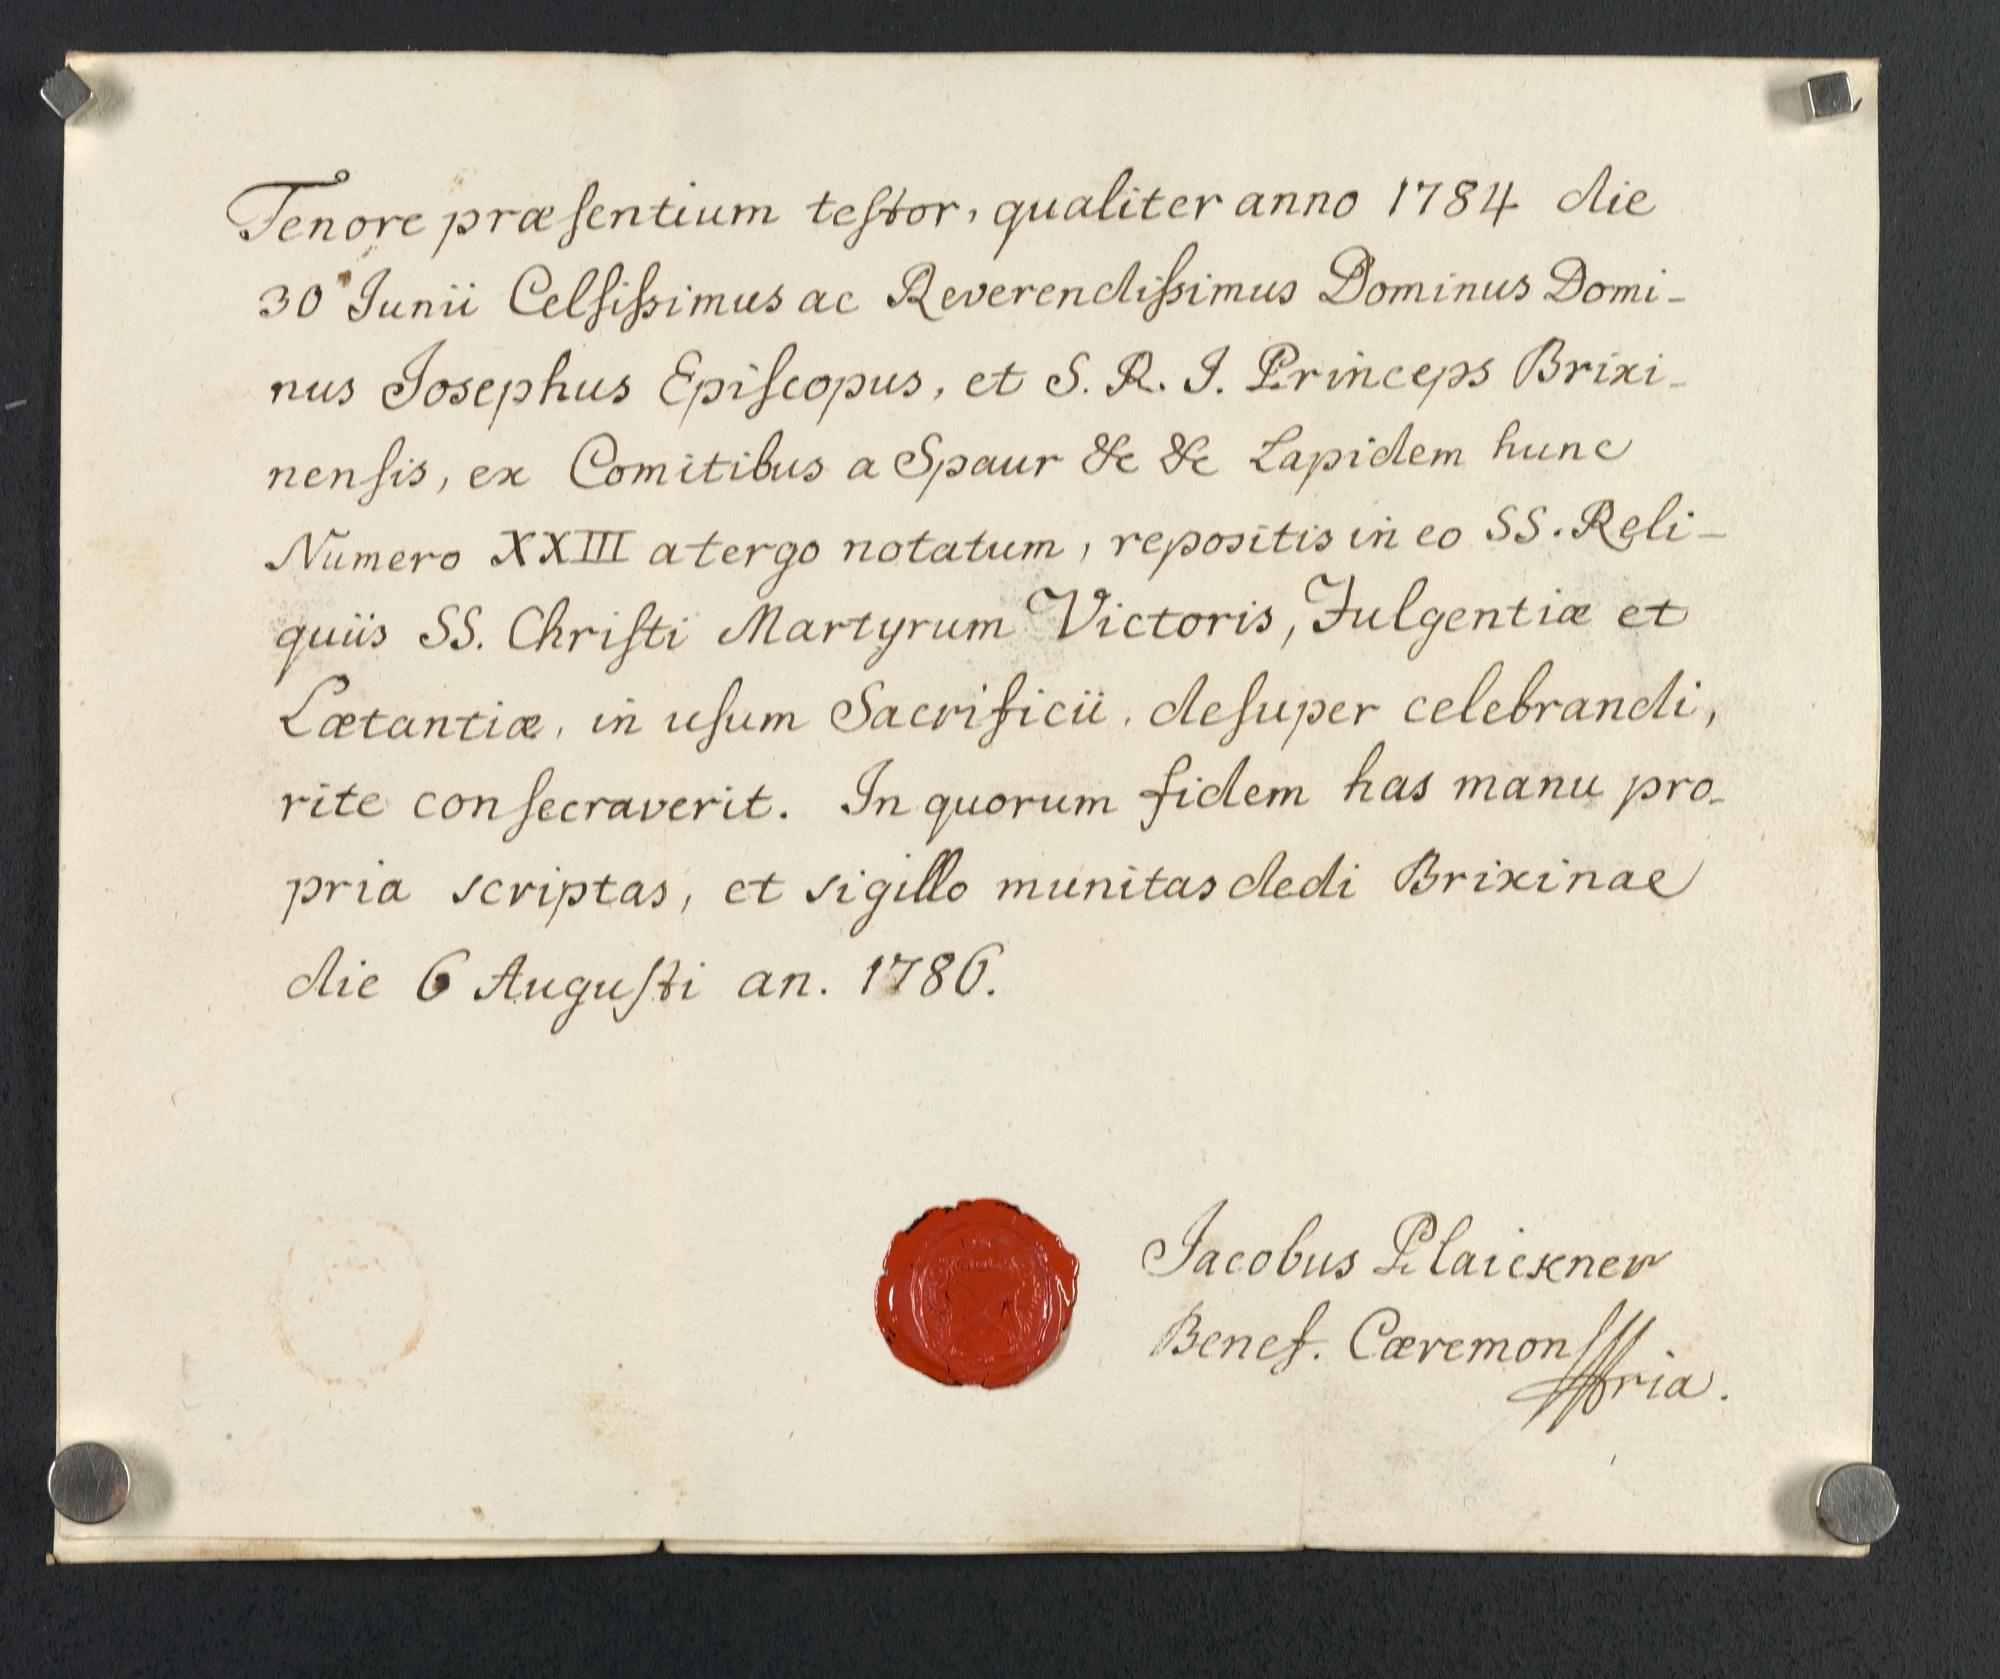 Tenore præsentium testor, qualiter anno 1784 die
30 Junii Celsissimus ac Reverendissimus Dominus Domi-
nus Josephus Episcopus, et S. R. J. Princeps Brixi-
nensis, ex Comitibus a Spaur &c &c Lapidem hunc
Numero XXIII a tergo notatum, repositis in eo SS. Reli-
quiis SS. Christi Martyrum Victoris, Fulgentiæ et
Lætantiæ, in usum Sacrificii, desuper celebrandi,
rite consecraverit. In quorum fidem has manu pro-
pria scriptas, et sigillo munitas dedi Brixinae
die 6 Augusti an. 1786.
Jacobus Plaickner
Benef. Cæremon